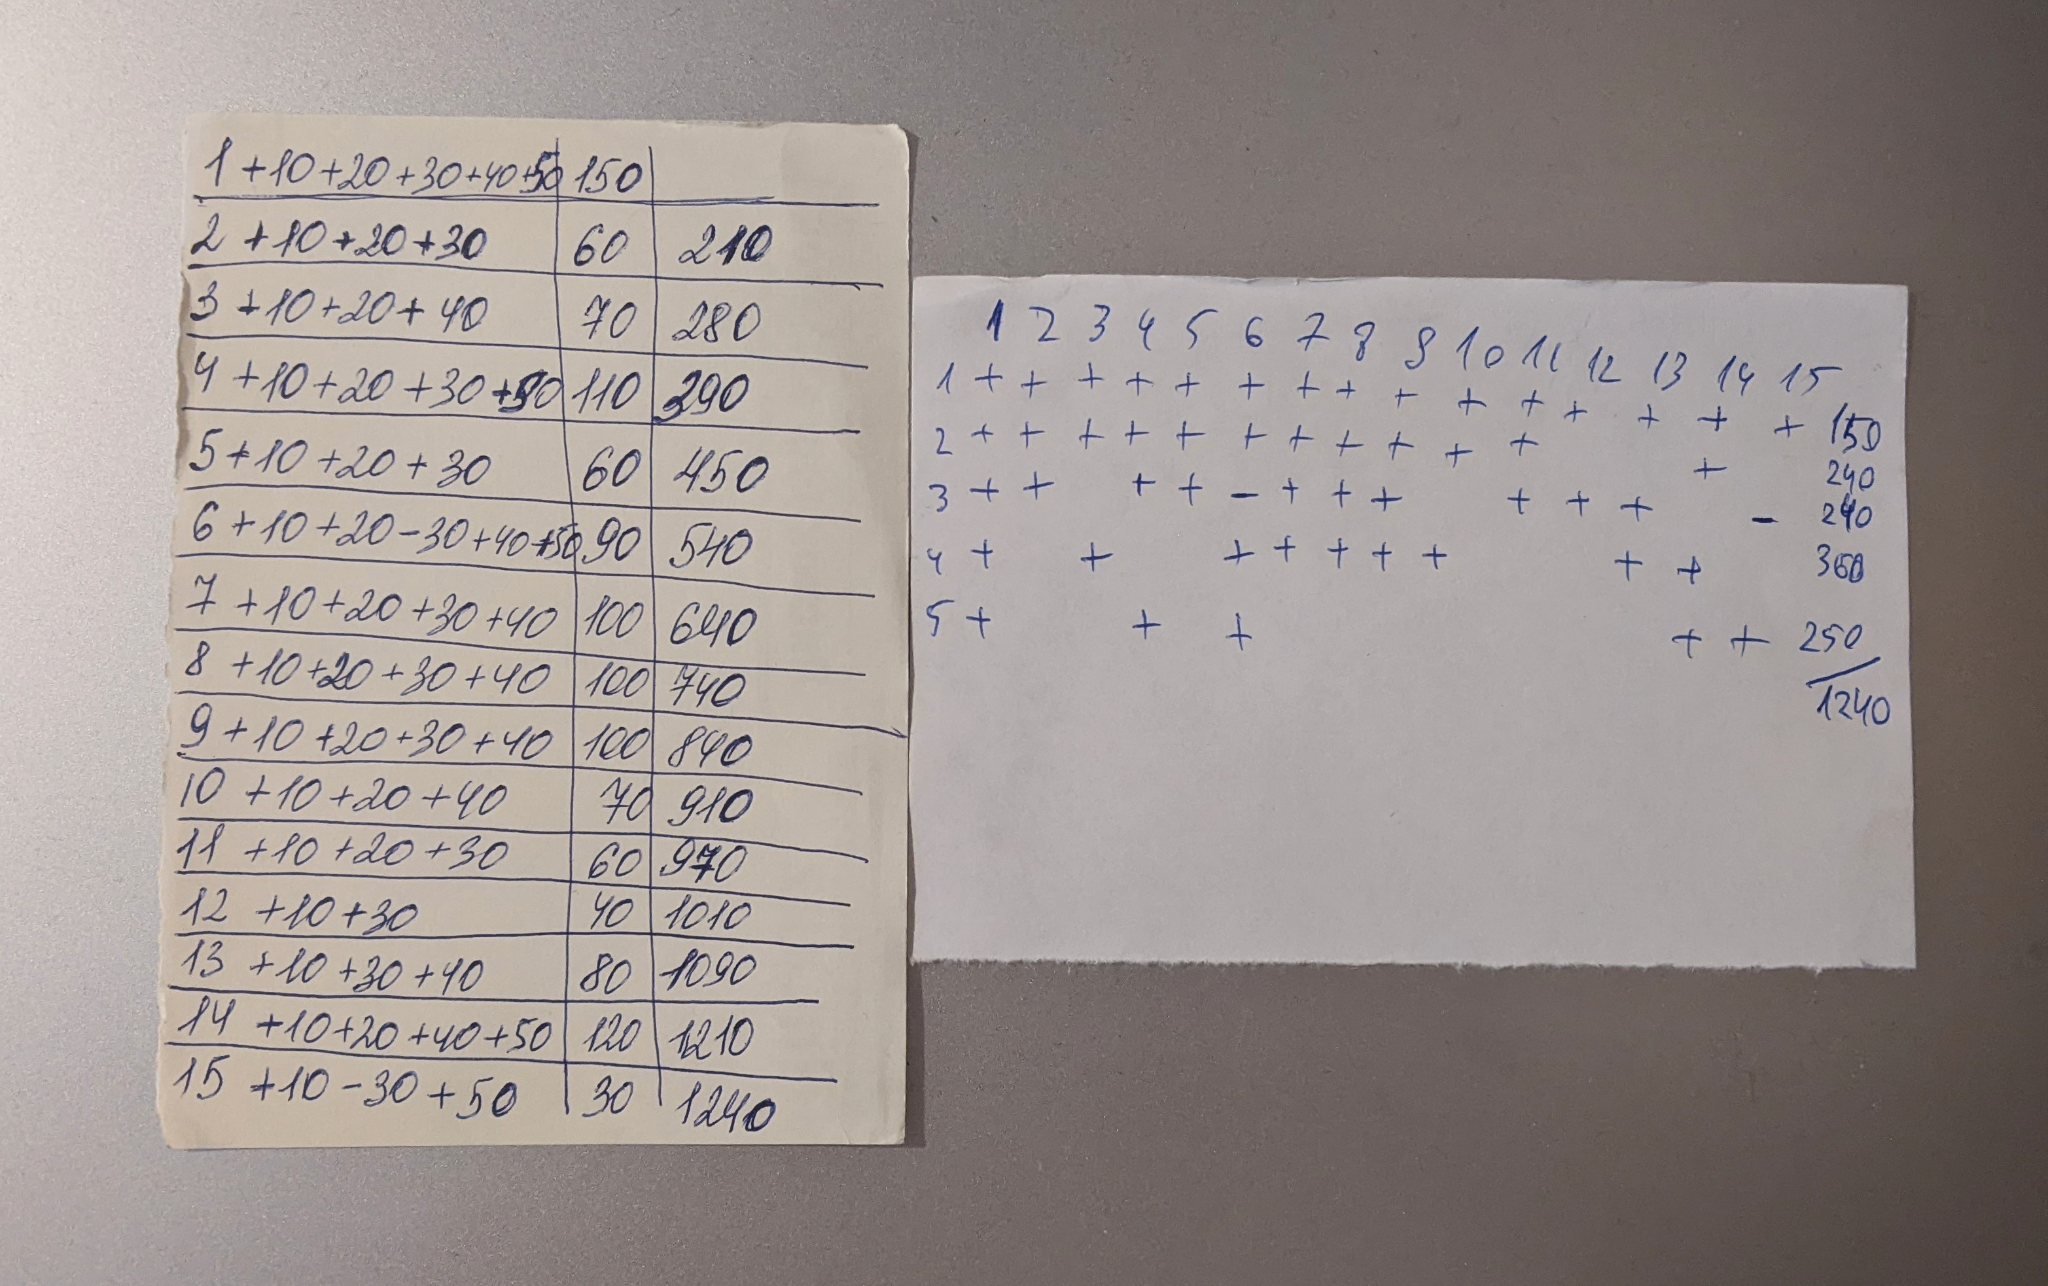 1 +10 +20 +30 +40 +50 150
2 +10 +20 +30 60 210
3 +10 +20 + 40 70 280
4 +10 +20 +30 +50 110 390
5 +10 +20 +30 60 450
6 +10 +20 -30 +40 +50 90 540
7 +10 +20 +30 +40 100 640
8 +10 +20 +30 +40 100 740
9 +10 +20 +30 +40 100 840
10 +10 +20 +40 70 910
11 +10 +20 +30 60 970
12 +10 +30 40 1010
13 +10 +30 +40 80 1090
14 +10 +20 +40 +50 120 1210
15 +10 -30 +50 30 1240
1 2 3 4 5 6 7 8 9 10 11 12 13 14 15
1 + + + + + + + + + + + + + + + 150
2 + + + + + + + + + + + + 240
3 + + + + - + + + + + + - 240
4 + + + + + + + + + 360
5 + + + + + 250
1240